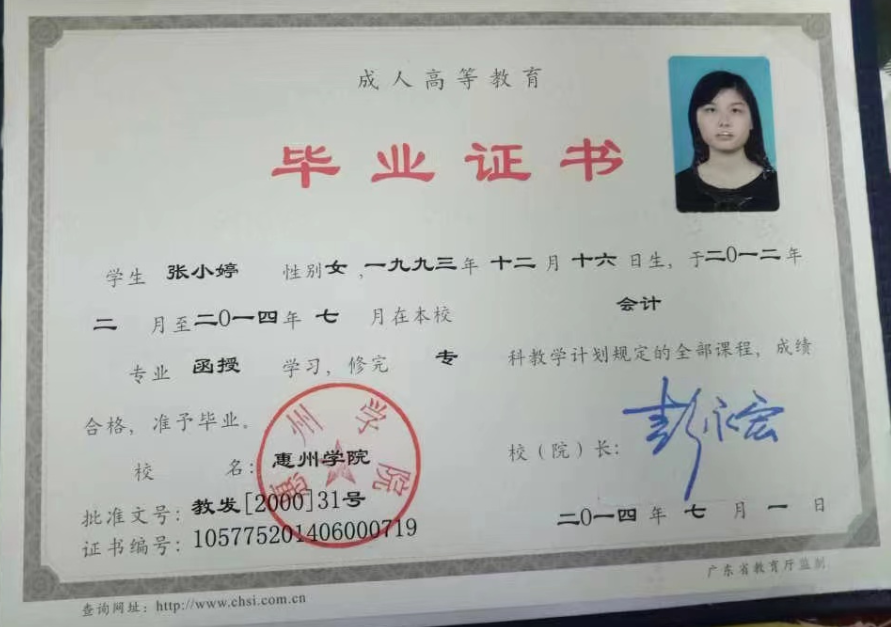 成人高等教育
毕业证书
学生 张小婷 性别女,一九九三年 十二 月 十六 日生,于二0一二年
二 月至二0一四年 七 月在本校 会计
专业 函授 学习,修完 专 科教学计划规定的全部课程,成绩
合格,准予毕业。
惠州学院
校 名:惠州学院
校(院)长:彭永宏
批准文号:教发[2000]31号
二0一四年 七 月 一 日
证书编号:105775201406000719
广东省教育厅监制
查询网址:http://www.chsi.com.cn